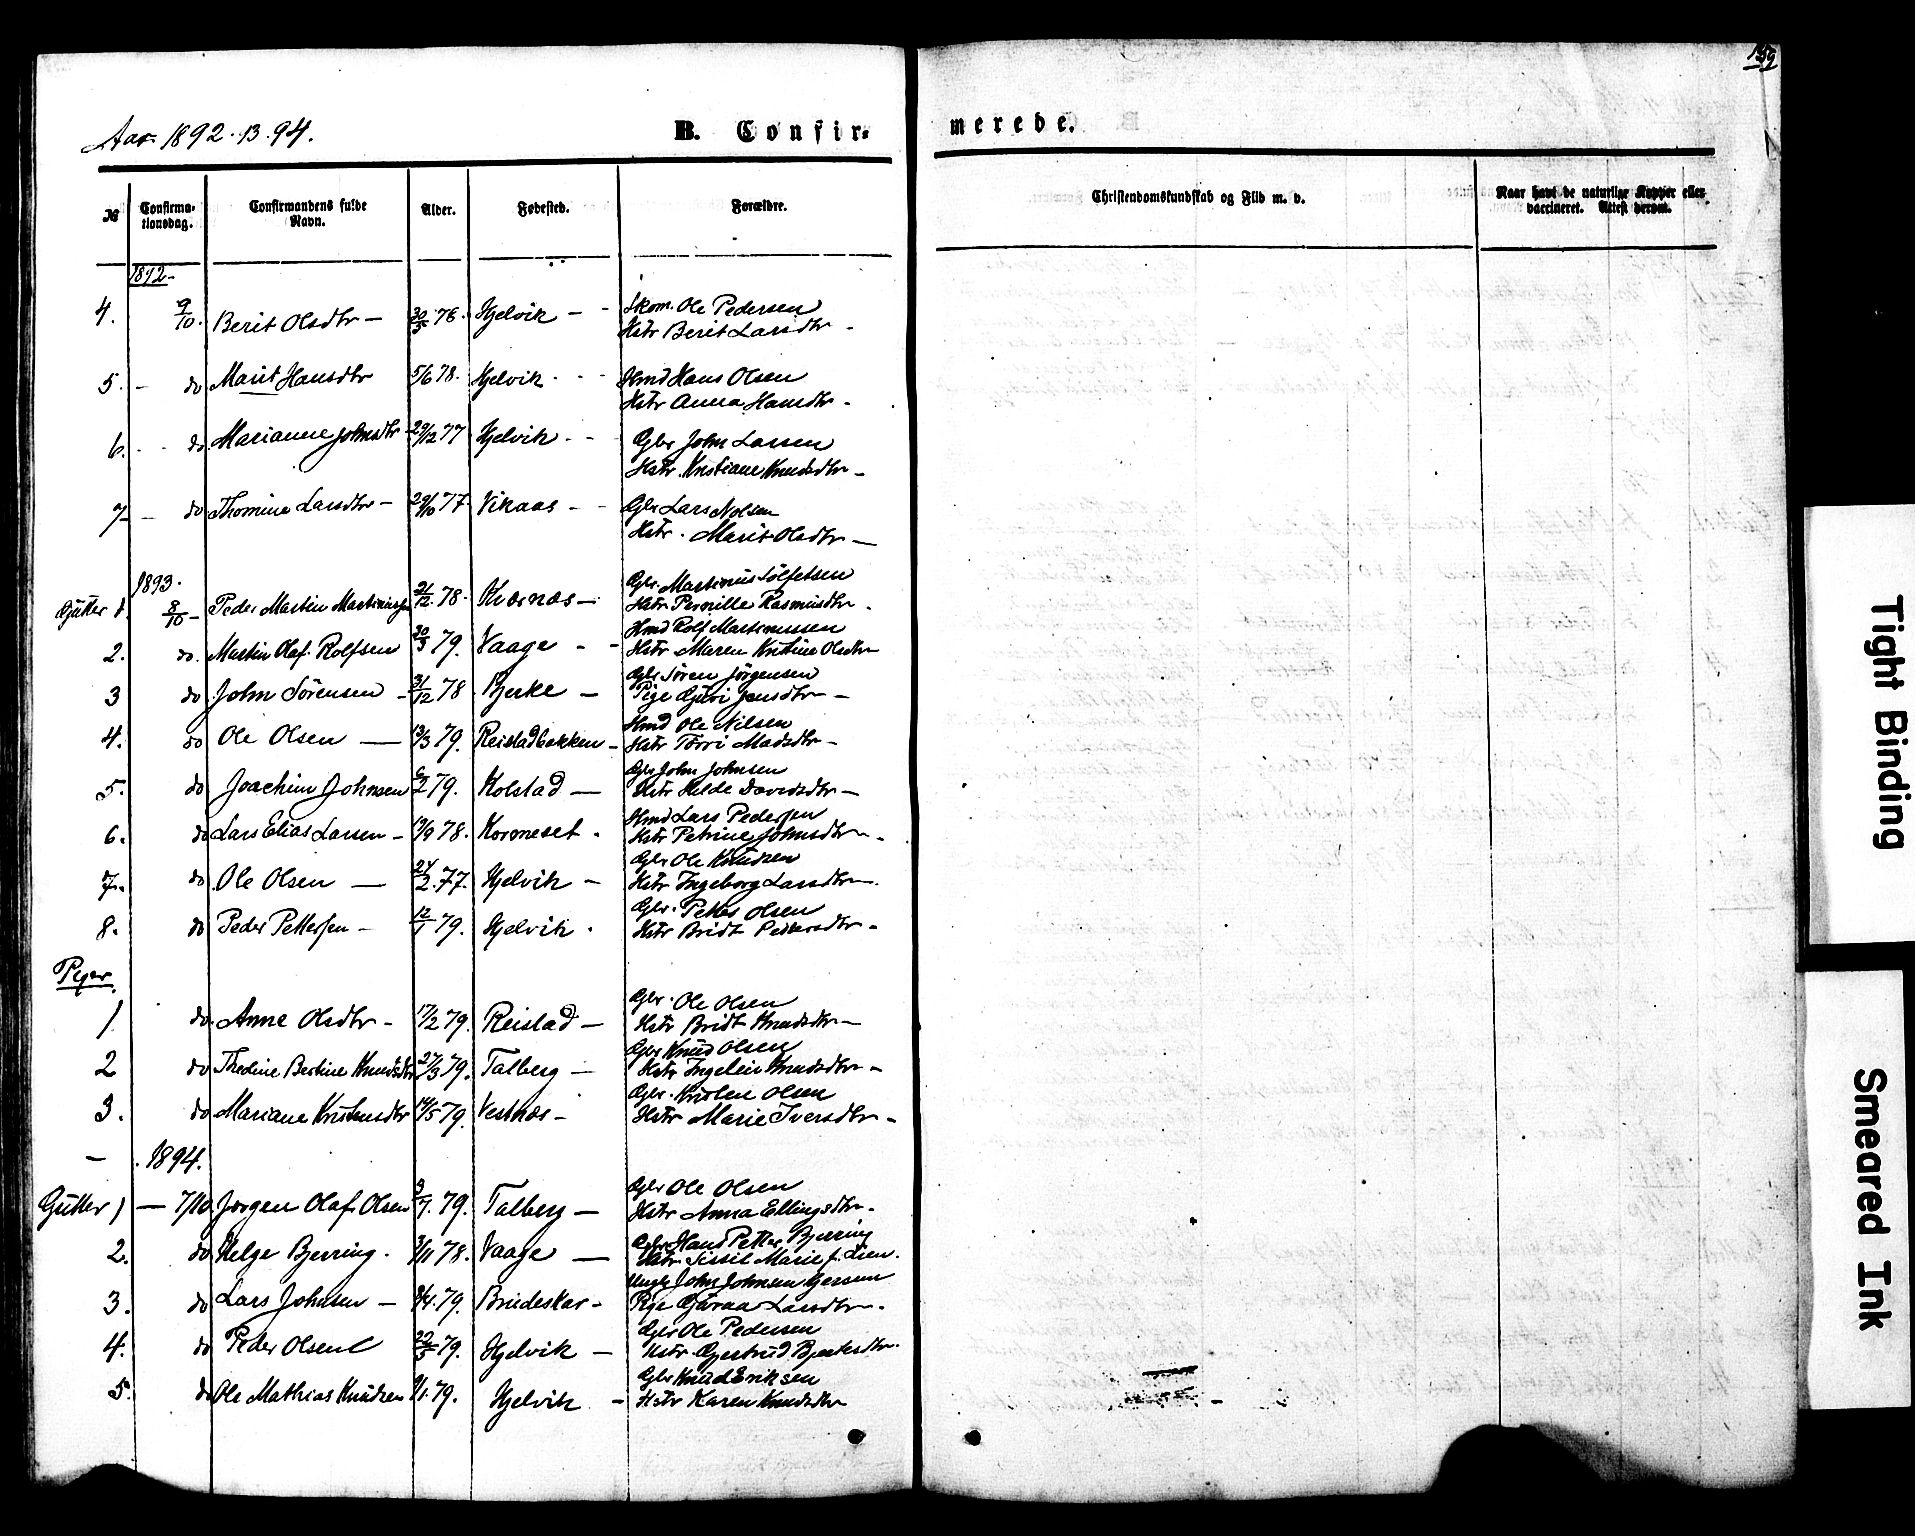 159
Aar 1892. 13. 94.
B. Confir- merede.
№ Confirma- tionsdag. Confirmandens fulde Navn. Alder. Fødested. Forældre. Christendomskundskab og Flid m. v. Naar havt de naturlige Kopper eller vaccineret. Attest derom.
1892-
4. 9/10. Berit Olsdtr - 30/5 78. Hjelvik - - Skom. Ole Pedersen
Hstr Berit Larsdtr -
5. - do Marit Hansdtr 5/6 78. Hjelvik - - Hmd Hans Olsen
Hstr Anna Hansdtr -
6. - - do Marianne Johnsdtr 29/12 77 Hjelvik - - Gbr John Larsen
Hstr. Kristiane Knudsdtr -
7 - do Thomine Larsdtr - 29/10 77. Vikaas - - Gbr Lars Nilsen
Hstr. Marit Olsdtr -
1893.
Gutter 1. 8/10 - Peder Martin Martinussen 21/12. 78. Kværnæs - Gbr. Martinus Sølfetsen
Hstr Pernille Rasmusdtr -
2. do. Martin Olaf Rolfsen 30/3 79. Vaage - - Hmd Rolf Martinussen
Hstr Maren Kristine Olsdtr
3 do John Sørensen - 31/12 78 Bjerke - Gbr Søren Jørgensen
Pige Guri Jensdtr -
4. do Ole Olsen - 13/3 79. Reistadbakken - Hmd Ole Nilsen
Hstr Torri Madsdtr -
5. do Joachim Johnsen 6/2 79. Kolstad - Gbr John Johnsen
Hstr Helde Davidsdtr -
6. do Lars Elias Larsen - 19/9 78. Kormeset - Hmd Lars Pedersen
Hstr Petrine Johnsdtr -
7. do Ole Olsen - 24/2. 77. Hjelvik - Gbr Ole Knudsen
Hstr Ingeborg Larsdtr -
8. do Peder Pettersen - 12/1 79. Hjelvik - Gbr. Petter Olsen
Hstr Bridt Pedersdtr -
Piger
1 do Anne Olsdtr - 17/2 79. Reistad - Gbr. Ole Olsen
Hstr Bridt Knudsdtr -
2 do Thedine Bertine Knudsdtr 27/3 79. Talberg - Gbr Knud Olsen
Hstr Ingeleiv Knudsdtr -
3. do Mariane Kristensdtr 14/5 79. Vestnæs - Gbr. Kristen Olsen
Hstr Marie Iversdtr -
- 1894.
Gutter 1 - 7/10 Jørgen Olaf Olsen 9/7. 79. Talberg - Gbr Ole Olsen
Hstr Anna Ellingsdtr -
2. do Helge Bjerring. 3/11 78. Vaage - Gbr Hans Petter Bjerring
Hstr Sissil Marie f. Lien.
3. do Lars Johnsen - 8/4. 79. Brudeskar - Ungk John Johnsen Gjersen
Pige Guraa Larsdtr -
4. do Peder Olsen 22/5 79. Hjelvik - Gbr Ole Pedersen
Hstr Gjertrud Bjerkesdtr.
5. do Ole Mathias Knudsen 9/1. 79. Hjelvik - Gbr Knud Eriksen
Hstr Karen Knudsdtr
Tight Binding
Smeared Ink